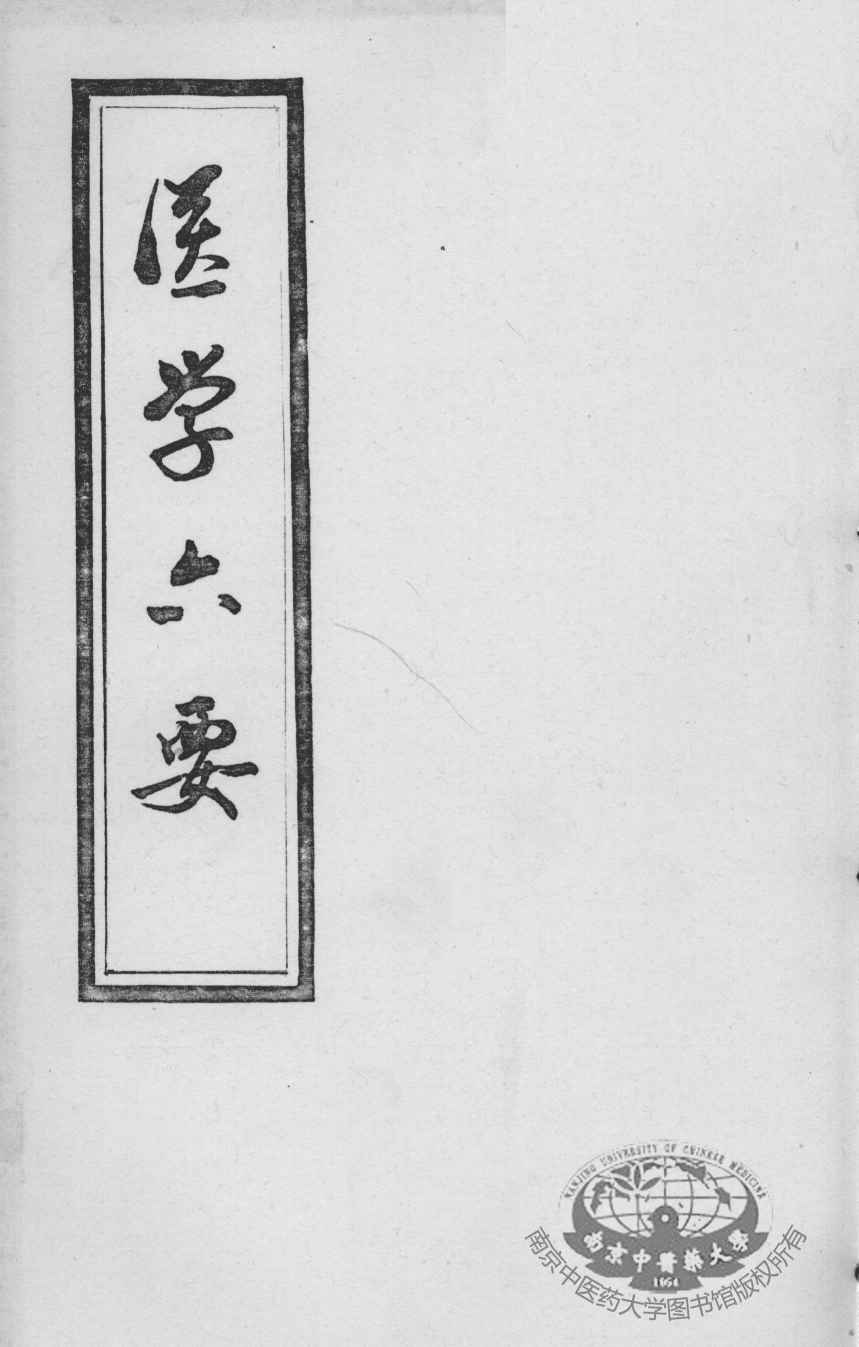 医学六要
NANJING UNIVERSITY OF CHINESE MEDICINE
南京中醫藥大學
1954
南京中医药大学图书馆版权所有